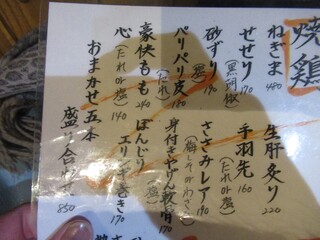 焼鶏
ねぎま 480
せせり (黒胡椒) 170
砂ずり (塩) 190
パリパリ皮 160
豪快もも (たれor塩) 240
心 (たれor塩) 140
おまかせ五本
盛り合わせ 850
生肝炙り 220
手羽先 (たれor塩) 160
ささみレア (梅しそorわさび) 190
身付きやげん軟骨 170
ぼんじり (塩)
エリンギ巻き 170